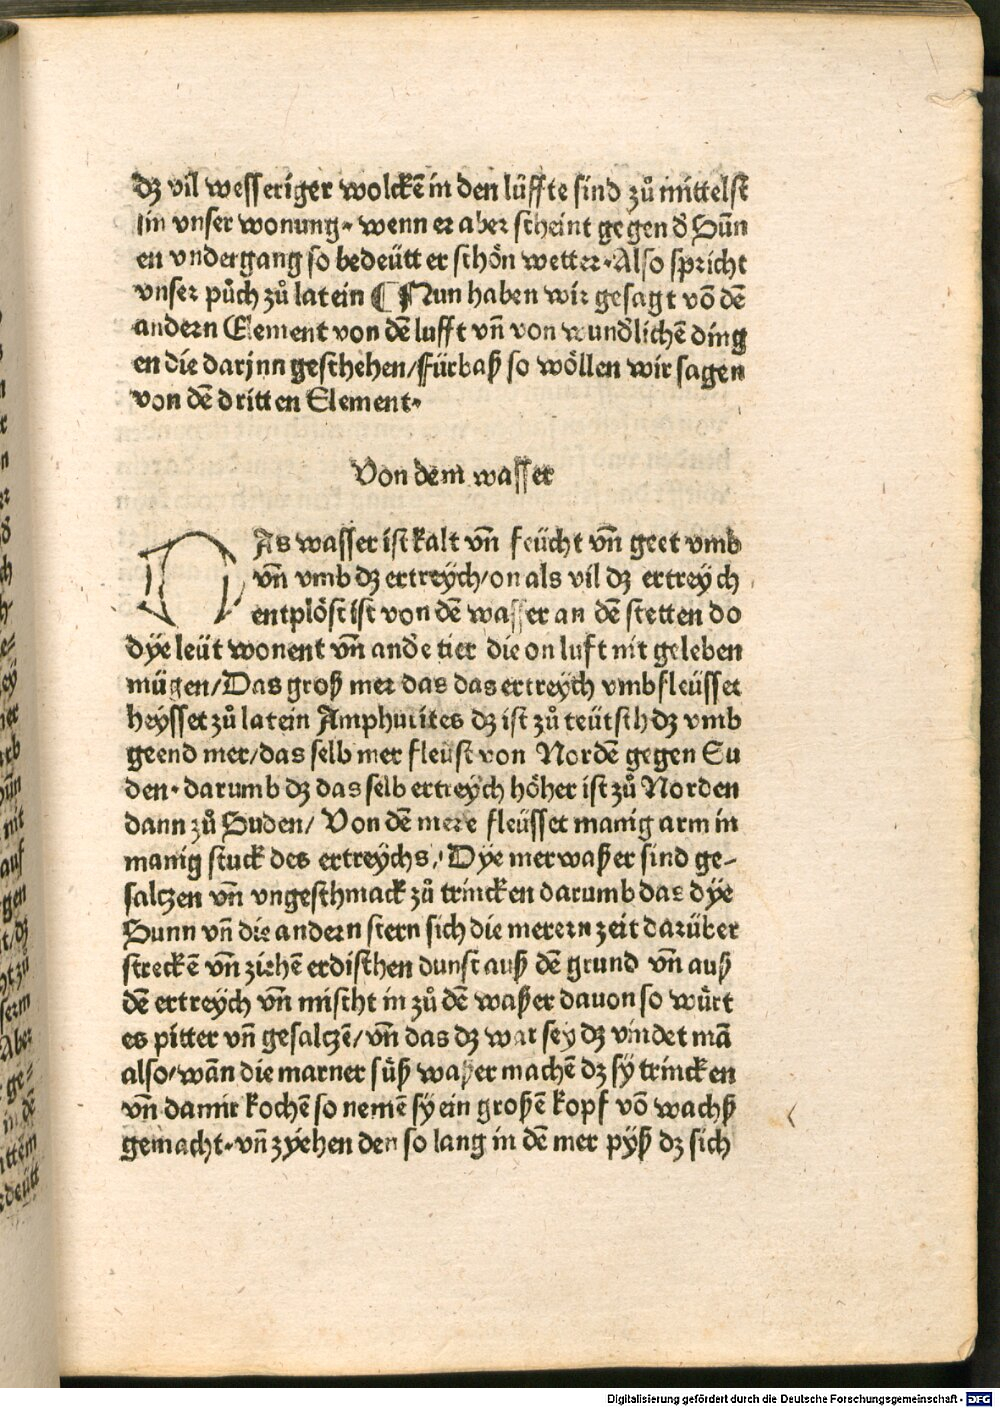 dz vil wesseriger wolckē in den lüffte sind zů mittelst
in vnser wonung. wenn er aber scheint gegen d̕ Sūn
en vndergang so bedeütt er schön wetter. Also spricht
vnser půch zů latein ¶ Nun haben wir gesagt võ dē
andern Element von dē lufft vñ von wund̕lichē ding
en die darjnn geschehen/ fürbaß so wöllen wir sagen
von dē dritten Element.
Von dem wasser
DAs wasser ist kalt vñ feücht vñ geet vmb
vñ vmb dz ertreÿch/ on als vil dz ertreÿch
entplöst ist von dē wasser an dē stetten do
dÿe leüt wonent vñ and̕e tier die on luft nit geleben
mügen/ Das groß mer das das ertreÿch vmbfleüsset
heÿsset zů latein Amphutites dz ist zů teütsch dz vmb
geend mer/ das selb mer fleüst von Nordē gegen Su
den. darumb dz das selb ertreÿch höher ist zů Norden
dann zů Suden/ Von dē mere fleüsset manig arm in
manig stuck des ertreÿchs/ Dÿe merwaßer sind ge-
saltzen vñ vngeschmack zů trincken darumb das dÿe
Sunn vñ die andern stern sich die merern zeit darüber
streckē vñ ziehē erdischen dunst auß dē grund vñ auß
dē ertreÿch vñ mischt in zů dē waßer dauon so würt
es pitter vñ gesaltzē/ vñ das dz war seÿ dz vindet mā
also/ wān die marner süß waßer machē dz sÿ trincken
vñ damit kochē so nemē sÿ ein großē kopf võ wachß
gemacht. vñ zÿehen den so lang in dē mer pÿß dz sich
Digitalisierung gefördert durch die Deutsche Forschungsgemeinschaft - DFG